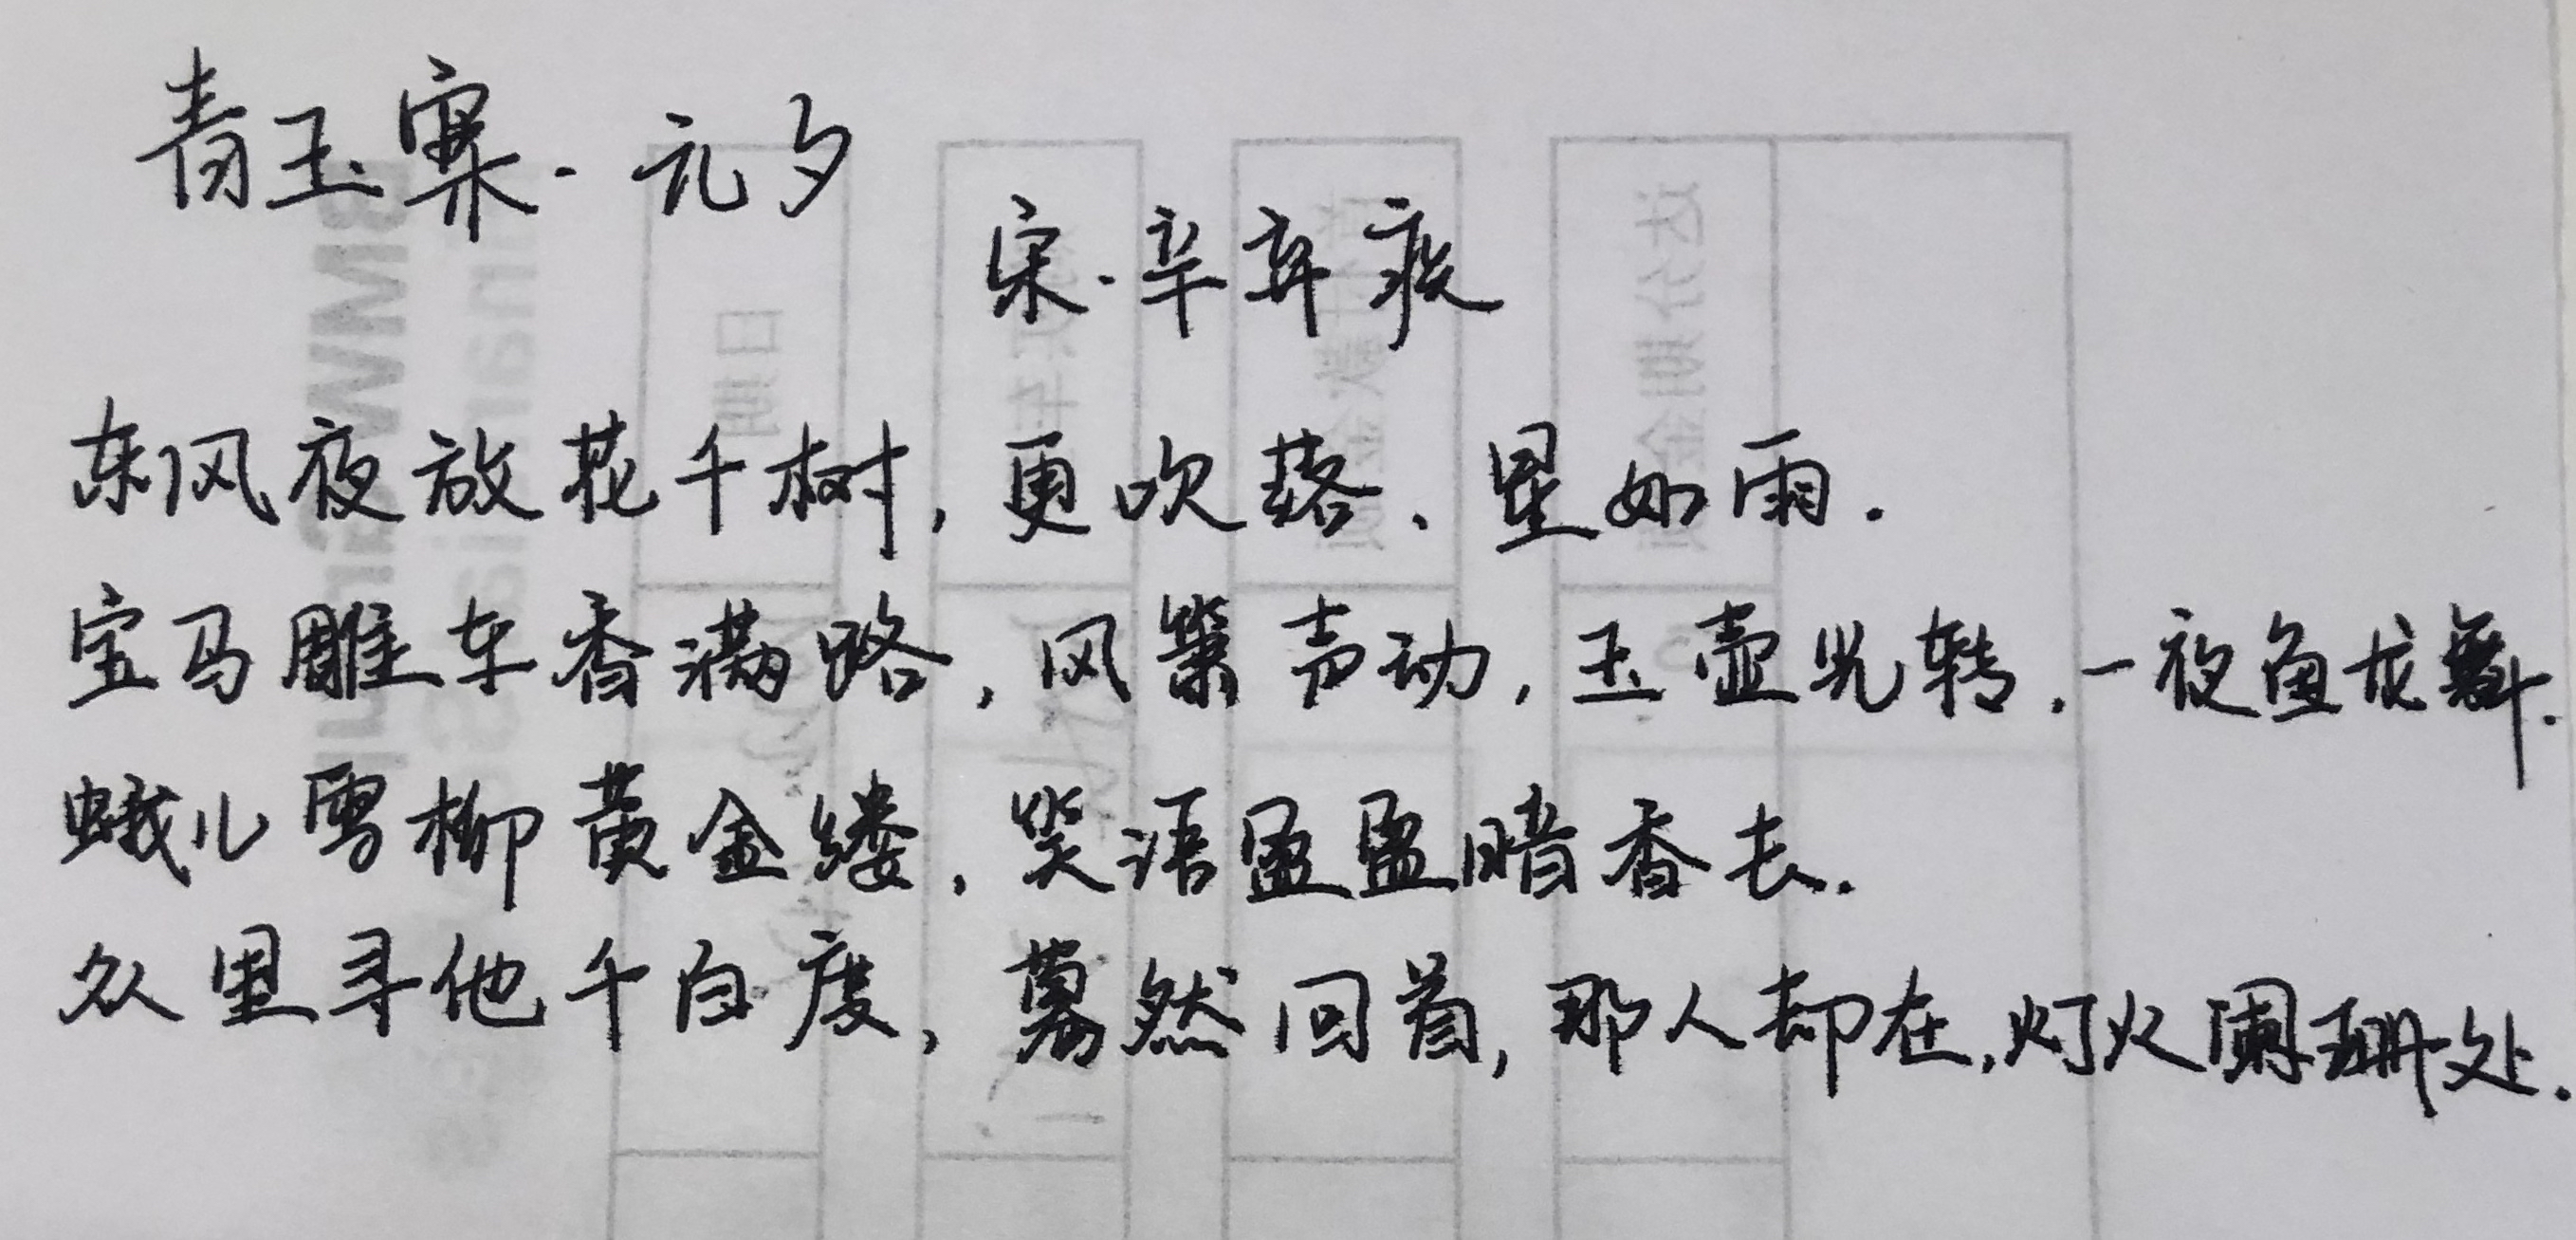 青玉案·元夕
宋·辛弃疾
东风夜放花千树,更吹落、星如雨.
宝马雕车香满路,风箫声动,玉壶光转.一夜鱼龙舞.
蛾儿雪柳黄金缕,笑语盈盈暗香去.
众里寻他千百度,蓦然回首,那人却在,灯火阑珊处.